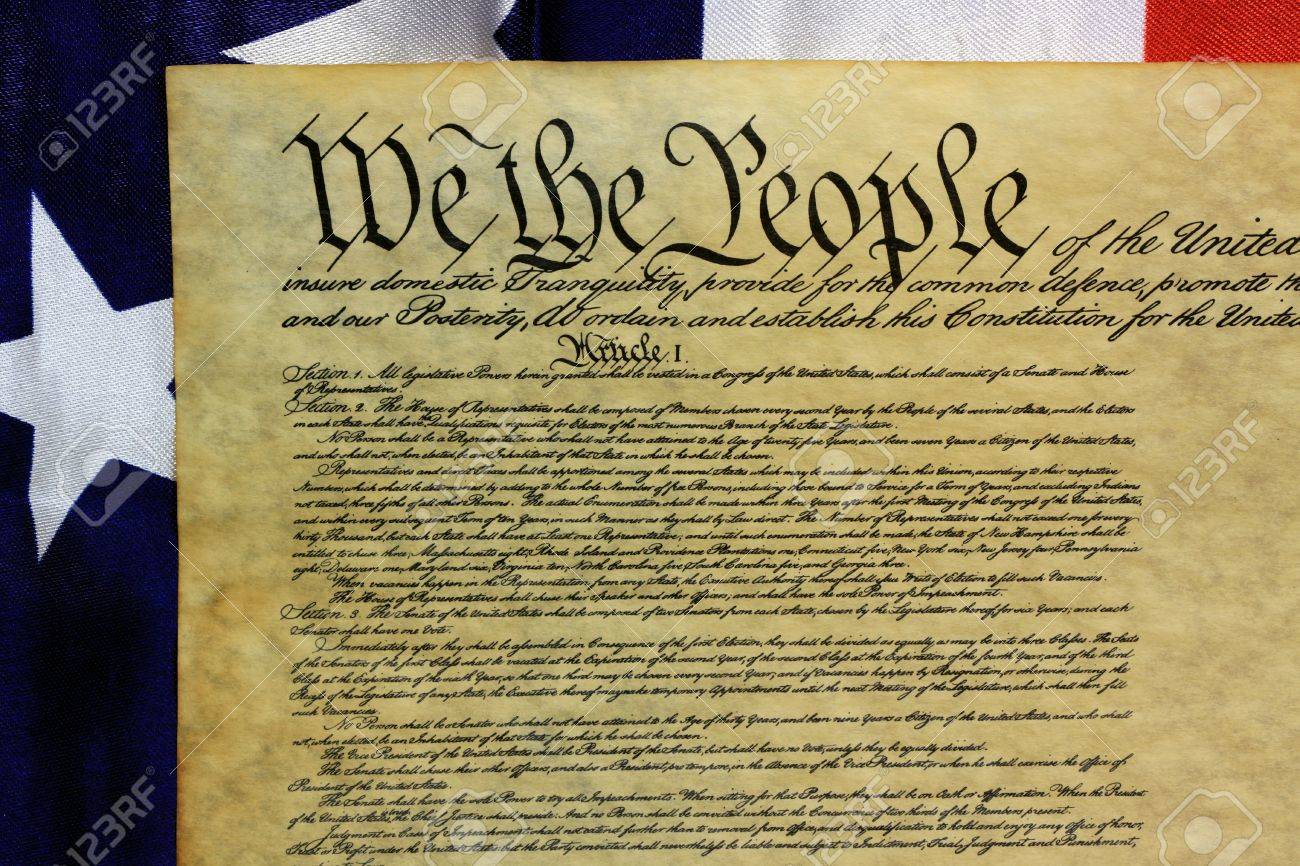 We the People of the United
insure domestic Tranquility, provide for the common defence, promote th
and our Posterity, do ordain and establish this Constitution for the United
Article. I.
Section. 1. All legislative Powers herein granted shall be vested in a Congress of the United States, which shall consist of a Senate and House
of Representatives.
Section. 2. The House of Representatives shall be composed of Members chosen every second Year by the People of the several States, and the Electors
in each State shall have the Qualifications requisite for Electors of the most numerous Branch of the State Legislature.
No Person shall be a Representative who shall not have attained to the Age of twenty five Years, and been seven Years a Citizen of the United States,
and who shall not, when elected, be an Inhabitant of that State in which he shall be chosen.
Representatives and direct Taxes shall be apportioned among the several States which may be included within this Union, according to their respective
Numbers, which shall be determined by adding to the whole Number of free Persons, including those bound to Service for a Term of Years, and excluding Indians
not taxed, three fifths of all other Persons. The actual Enumeration shall be made within three Years after the first Meeting of the Congress of the United States,
and within every subsequent Term of ten Years, in such Manner as they shall by Law direct. The Number of Representatives shall not exceed one for every
thirty Thousand, but each State shall have at Least one Representative; and until such enumeration shall be made, the State of New Hampshire shall be
entitled to chuse three, Massachusetts eight, Rhode Island and Providence Plantations one, Connecticut five, New York six, New Jersey four, Pennsylvania
eight, Delaware one, Maryland six, Virginia ten, North Carolina five, South Carolina five, and Georgia three.
When vacancies happen in the Representation from any State, the Executive Authority thereof shall issue Writs of Election to fill such Vacancies.
The House of Representatives shall chuse their Speaker and other Officers; and shall have the sole Power of Impeachment.
Section. 3. The Senate of the United States shall be composed of two Senators from each State, chosen by the Legislature thereof, for six Years; and each
Senator shall have one Vote.
Immediately after they shall be assembled in Consequence of the first Election, they shall be divided as equally as may be into three Classes. The Seats
of the Senators of the first Class shall be vacated at the Expiration of the second Year, of the second Class at the Expiration of the fourth Year, and of the third
Class at the Expiration of the sixth Year, so that one third may be chosen every second Year; and if Vacancies happen by Resignation, or otherwise, during the
Recess of the Legislature of any State, the Executive thereof may make temporary Appointments until the next Meeting of the Legislature, which shall then fill
such Vacancies.
No Person shall be a Senator who shall not have attained to the Age of thirty Years, and been nine Years a Citizen of the United States, and who shall
not, when elected, be an Inhabitant of that State for which he shall be chosen.
The Vice President of the United States shall be President of the Senate, but shall have no Vote, unless they be equally divided.
The Senate shall chuse their other Officers, and also a President pro tempore, in the Absence of the Vice President, or when he shall exercise the Office of
President of the United States.
The Senate shall have the sole Power to try all Impeachments. When sitting for that Purpose, they shall be on Oath or Affirmation. When the President
of the United States is tried, the Chief Justice shall preside: And no Person shall be convicted without the Concurrence of two thirds of the Members present.
Judgment in Cases of Impeachment shall not extend further than to removal from office, and disqualification to hold and enjoy any Office of honor,
Trust or Profit under the United States: but the Party convicted shall nevertheless be liable and subject to Indictment, Trial, Judgment and Punishment,